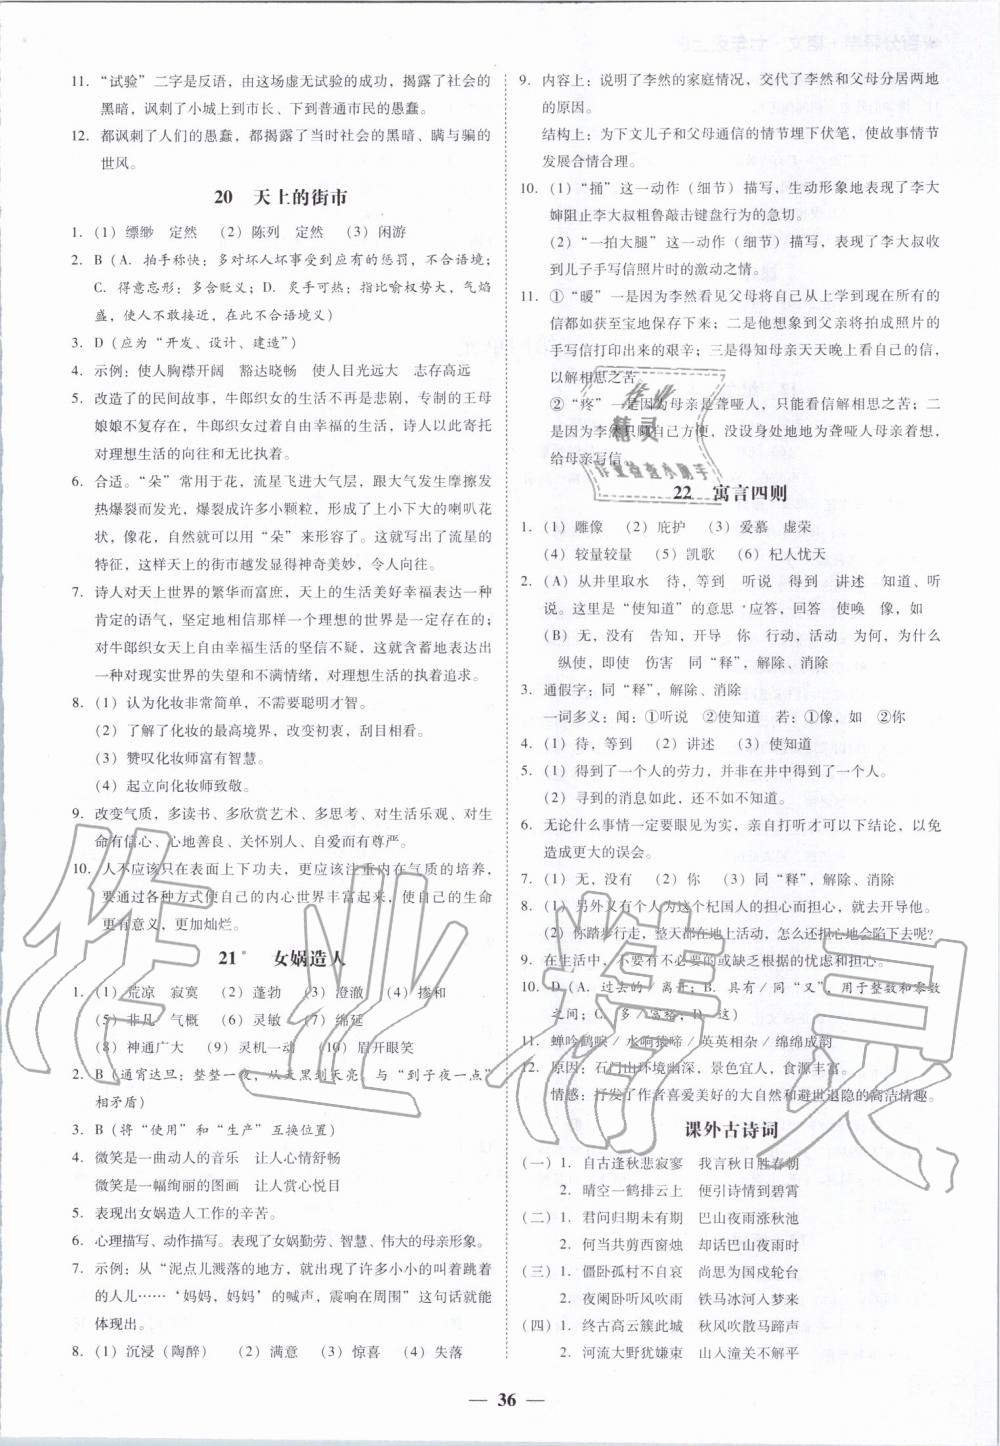 11. “试验”二字是反语，由这场虚无试验的成功，揭露了社会的
黑暗，讽刺了小城上到市长、下到普通市民的愚蠢。
12. 都讽刺了人们的愚蠢，都揭露了当时社会的黑暗、瞒与骗的
世风。
20 天上的街市
1. （1）缥缈 定然 （2）陈列 定然 （3）闲游
2. B（A. 拍手称快：多对坏人坏事受到应有的惩罚，不合语境；
C. 得意忘形：多含贬义；D. 炙手可热：指比喻权势大，气焰
盛，使人不敢接近，在此不合语境义）
3. D（应为“开发、设计、建造”）
4. 示例：使人胸襟开阔 豁达晓畅 使人目光远大 志存高远
5. 改造了的民间故事，牛郎织女的生活不再是悲剧，专制的王母
娘娘不复存在，牛郎织女过着自由幸福的生活，诗人以此寄托
对理想生活的向往和无比执着。
6. 合适。“朵”常用于花，流星飞进大气层，跟大气发生摩擦发
热爆裂而发光，爆裂成许多小颗粒，形成了上小下大的喇叭花
状，像花，自然就可以用“朵”来形容了。这就写出了流星的
特征，这样天上的街市越发显得神奇美妙，令人向往。
7. 诗人对天上世界的繁华而富庶，天上的生活美好幸福使用一种
肯定的语气，坚定地相信那样一个理想的世界是一定存在的；
对牛郎织女天上自由幸福生活的坚信不疑，这就含蓄地表达出
一种对现实世界的失望和不满情绪，对理想生活的执着追求。
8. （1）认为化妆非常简单，不需要聪明才智。
（2）了解了化妆的最高境界，改变初衷，刮目相看。
（3）赞叹化妆师富有智慧。
（4）起立向化妆师致敬。
9. 改变气质，多读书、多欣赏艺术、多思考、对生活乐观、对生
命有信心、心地善良、关怀别人、自爱而有尊严。
10. 人不应该只在表面上下功夫，更应该注重内在气质的培养，
要通过各种方式使自己的内心世界丰富起来，使自己的生命
更有意义，更加灿烂。
21* 女娲造人
1. （1）荒凉 寂寞 （2）蓬勃 （3）澄澈 （4）掺和
（5）非凡 气概 （6）灵敏 （7）绵延
（8）神通广大 （9）灵机一动 （10）眉开眼笑
2. B（通宵达旦：整整一夜，从天黑到天亮。与“到子夜一点”
相矛盾）
3. B（将“使用”和“生产”互换位置）
4. 微笑是一曲动人的音乐 让人心情舒畅
微笑是一幅绚丽的图画 让人赏心悦目
5. 表现出女娲造人工作的辛苦。
6. 心理描写、动作描写。表现了女娲勤劳、智慧、伟大的母亲形象。
7. 示例：从“泥点儿溅落的地方，就出现了许多小小的叫着跳着
的人儿……‘妈妈，妈妈’的喊声，震响在周围”这句话就能
体现出。
8. （1）沉浸（陶醉） （2）满意 （3）惊喜 （4）失落
9. 内容上：说明了李然的家庭情况，交代了李然和父母分居两地
的原因。
结构上：为下文儿子和父母通信的情节埋下伏笔，使故事情节
发展合情合理。
10. （1）“捅”这一动作（细节）描写，生动形象地表现了李大
婶阻止李大叔粗鲁敲击键盘行为的急切。
（2）“一拍大腿”这一动作（细节）描写，表现了李大叔收
到儿子手写信照片时的激动之情。
11. ①“暖”一是因为李然看见父母将自己从上学到现在所有的
信都如获至宝地保存下来；二是他想象到父亲将拍成照片的
手写信打印出来的艰辛；三是得知母亲天天晚上看自己的信，
以解相思之苦。
②“疼”一是因为母亲是聋哑人，只能看信解相思之苦；二
是因为李然只顾自己方便，没设身处地地为聋哑人母亲着想，
给母亲写信。
22 寓言四则
1. （1）雕像 （2）庇护 （3）爱慕 虚荣
（4）较量较量 （5）凯歌 （6）杞人忧天
2. （A）从井里取水 待，等到 听说 得到 讲述 知道、听
说。这里是“使知道”的意思 应答，回答 使唤 像，如
（B）无，没有 告知，开导 你 行动，活动 为何，为什么
纵使，即使 伤害 同“释”，解除、消除
3. 通假字：同“释”，解除、消除
一词多义：闻：①听说 ②使知道 若：①像，如 ②你
4. （1）待，等到 （2）讲述 （3）使知道
5. （1）得到了一个人的劳力，并非在井中得到了一个人。
（2）寻到的消息如此，还不如不知道。
6. 无论什么事情一定要眼见为实，亲自打听才可以下结论，以免
造成更大的误会。
7. （1）无，没有 （2）你 （3）同“释”，解除、消除
8. （1）另外又有个人为这个杞国人的担心而担心，就去开导他。
（2）你踏步行走，整天都在地上活动，怎么还担心地会陷下去呢？
9. 在生活中，不要有不必要的忧虑和担心。
10. D（A. 过去的／离开；B. 具有／同“又”，用于整数和零数
之间；C. 多／富裕；D. 这）
11. 蝉吟鹤唳／水响猿啼／英英相杂／绵绵成韵
12. 原因：石门山环境幽深，景色宜人，食源丰富。
情感：抒发了作者喜爱美好的大自然和避世退隐的高洁情趣。
课外古诗词
（一）1. 自古逢秋悲寂寥 我言秋日胜春朝
2. 晴空一鹤排云上 便引诗情到碧霄
（二）1. 君问归期未有期 巴山夜雨涨秋池
2. 何当共剪西窗烛 却话巴山夜雨时
（三）1. 僵卧孤村不自哀 尚思为国戍轮台
2. 夜阑卧听风吹雨 铁马冰河入梦来
（四）1. 终古高云簇此城 秋风吹散马蹄声
2. 河流大野犹嫌束 山入潼关不解平
— 36 —
作业精灵
作业
精灵
作业检查小助手